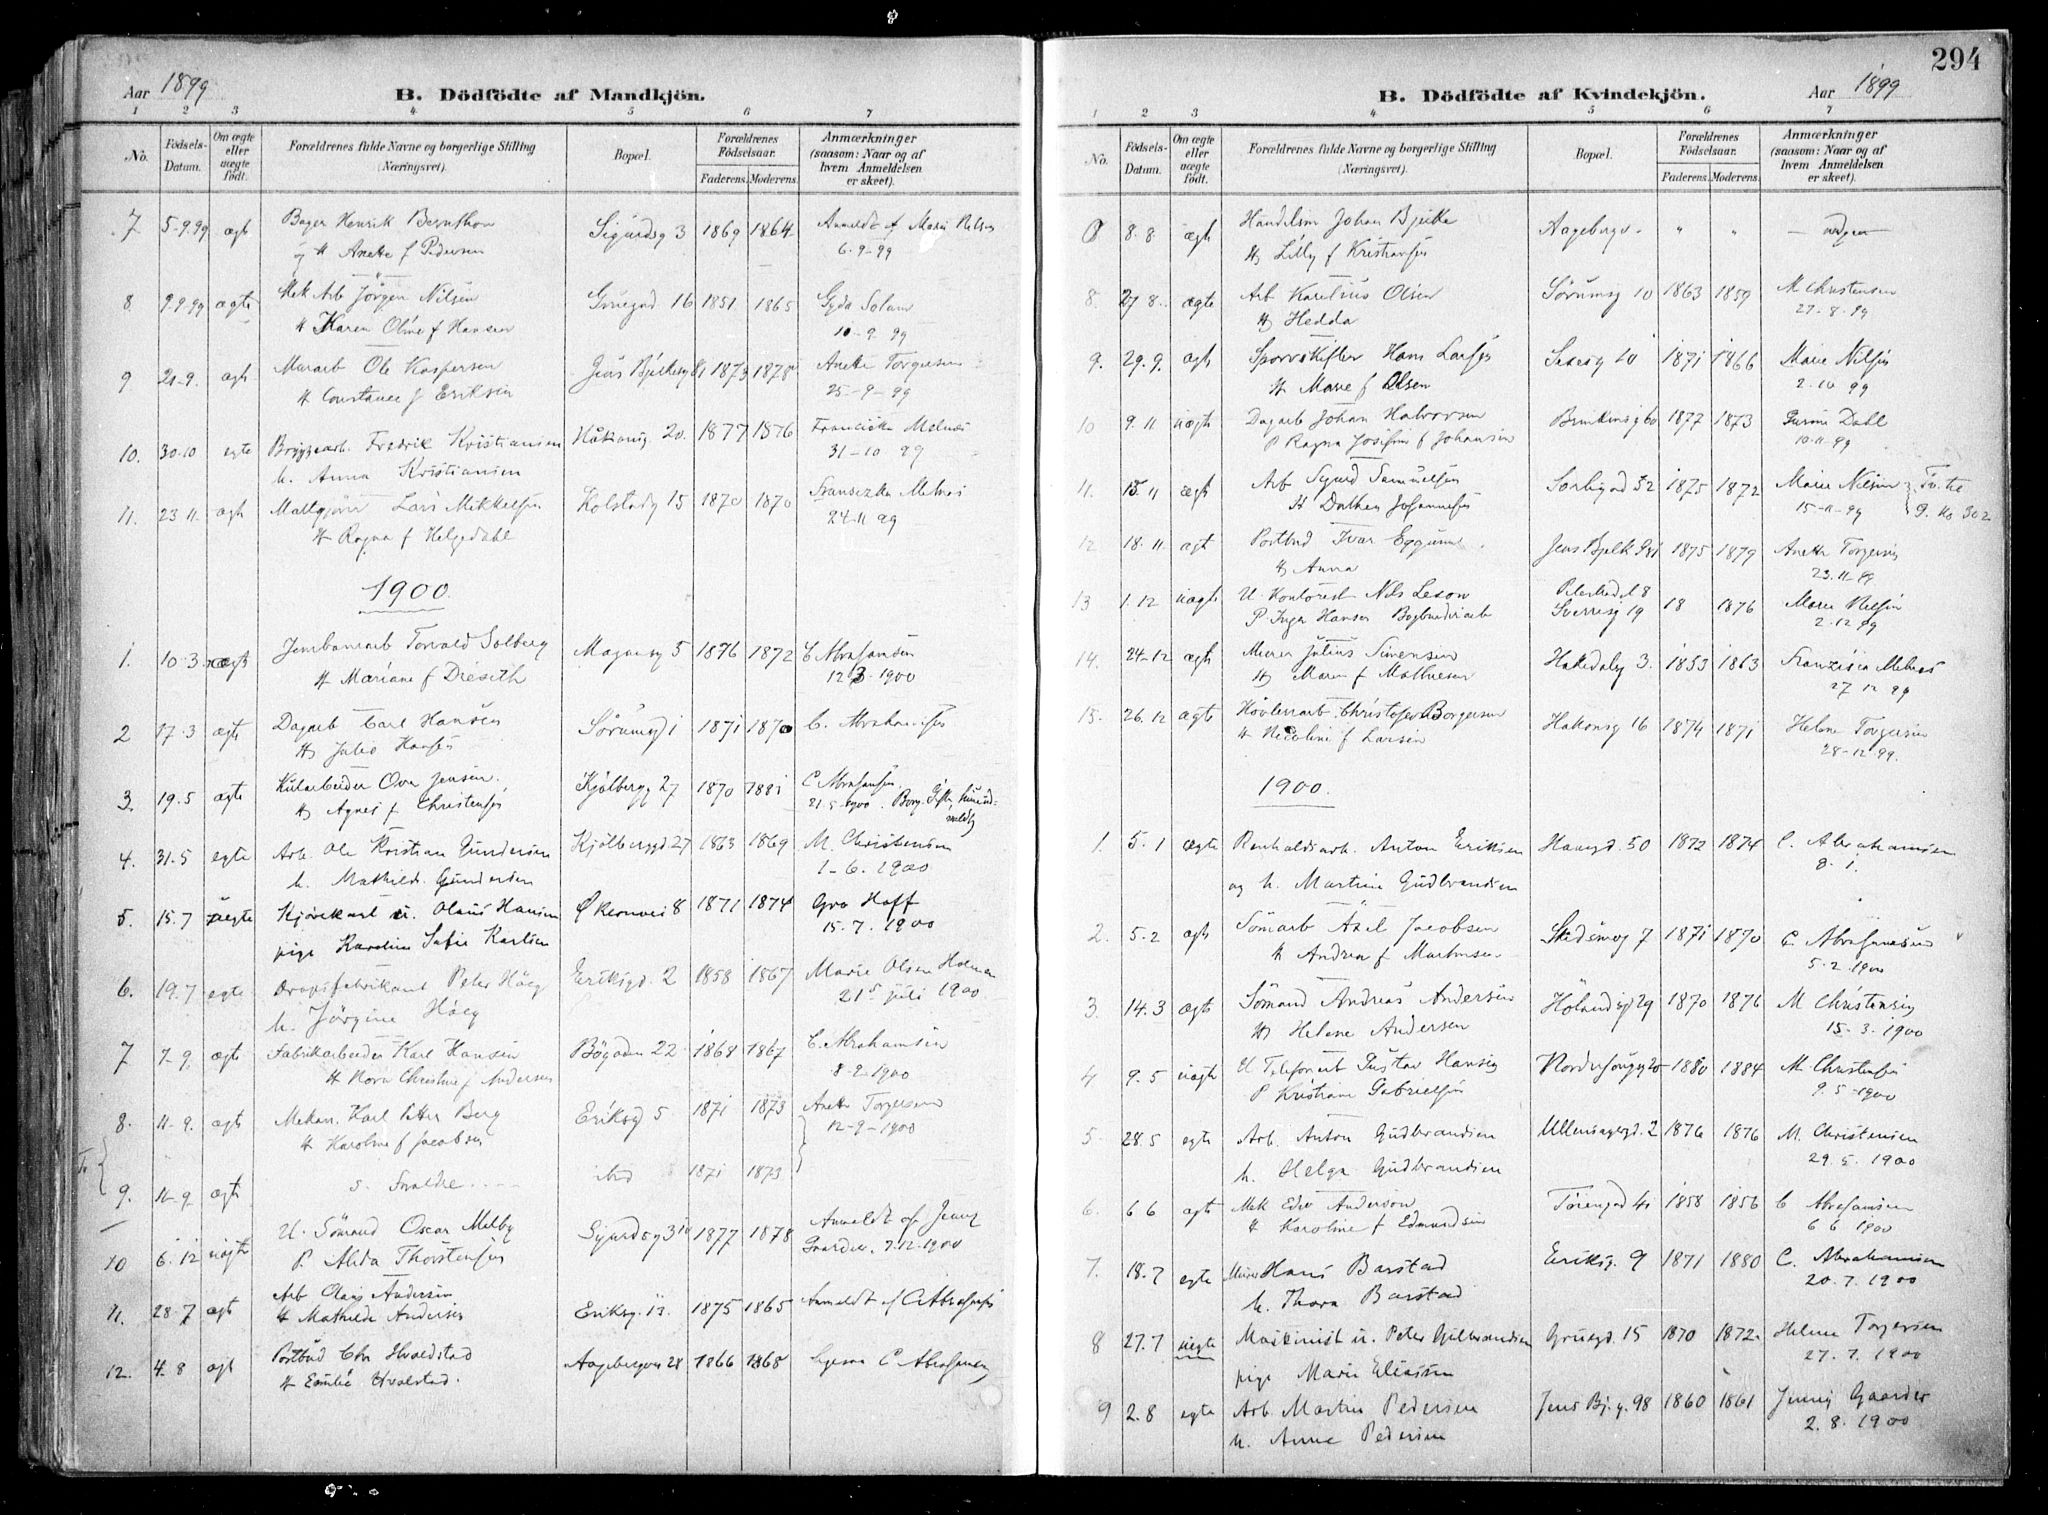 Aar 1899
B. Dödfödte af Mandkjön.
1 2 3 4 5 6 7
No. Födsels-Datum. Om ægte eller uægte födt. Forældrenes fulde Navne og borgerlige Stilling (Næringsvei). Bopæl. Forældrenes Födselsaar. Faderens. Moderens. Anmærkninger (saasom: Naar og af hvem Anmeldelsen er skeet).
7 5-9.99 ægt Bager Henrik Berntsen Sigurdsg 3 1869 1864 Anmeldt af Marie Nilsen
og H Anette f Pedersen 6-9-99
8 9.9.99 ægte Mek Arb Jörgen Nilsen Gruegad 16 1851 1865 Gyda Solum
H Karen Oline f Hansen 10-9.99
9 20-9. ægt Murarb Ole Kaspersen Jens Bjelkesg 1873 1878 Anette Torgersen
H Constance f Eriksen 25-9-99
10. 30-10 egte Bryggearb. Fredrik Kristiansen Håkonsg. 20. 1877 1876 Franciska Melnæs
h. Anna Kristiansen 31-10 99
11. 23 11. ægt Lars Mikkelsen Kolstadg 15 1870 1870 Fransizka Melnæs
H Ragna f Helgedahl 24-11 99
1900.
1. 10.3 Jernbanearb Torvald Solberg Magnusg 5 1876 1872 C Abrahamsen
H Mariane f Dieseth 12 3-1900
2 17.3 ægte Dagarb Carl Hansen Sörumsg 1 1871 1870 C. Abrahamsen
H Julie Hansen
3. 19.5 ægte Kularbeider Ove Jensen. Kjölbergg 27 1870 1881 C Abrahamsen
H Agnes f Christensen 21.5-1900.
4. 31.5 egte Arb. Ole Kristian Gundersen Kjölberggd 27 1863 1869 M. Christensen
h. Mathilde Gundersen 1-6. 1900
5. 15.7 uegte Kjörekarl u. Olaus Hansen Økernvei 8 1871 1874 Gro Hoff
pige Karoline Sofie Karlsen 15.7. 1900
6. 19.7 egte Dropsfabrikant Peter Höeg Eriksgd. 2 1858 1867 Marie Olsen Holman
h. Jörgine Höeg 21de juli 1900
7 7-9 ægte Fabrikarbeider Karl Hansen Bögaden 22. 1868 1867 C. Abrahamsen
H Nora Christine f Andersen 8-9-1900
8. 11-9. ægt Mekan. Karl Petter Berg Eriksg 5 1871 1873 Anette Torgersen
H Karoline f Jacobsen 12-9-1900
9. 11-9 ægte s. Foreldre ibid 1871 1873
10 6.12 uægte U. Sömand Oscar Melby Sigurdsg 3 1877 1878 Anmeldt af Jenny
P. Alida Thorstensen Gaarder. 7.12-1900
11. 28.7 ægt Arb Olaus Andersen Eriksg. 13. 1875 1865 Anmeldt af C Abrahamsen
H Mathilde Andersen
12. 4.8 ægt Postbud Chr Hvalstad Aagebergvei 28 1866 1868 C Abrahamsen
H Emilie Hvalstad.
294
Aar 1899
B. Dödfödte af Kvindekjön.
1 2 3 4 5 6 7
No. Födsels-Datum. Om ægte eller uægte födt. Forældrenes fulde Navne og borgerlige Stilling (Næringsvei). Bopæl. Forældrenes Födselsaar. Faderens. Moderens. Anmærkninger (saasom: Naar og af hvem Anmeldelsen er skeet).
8.8. ægt Handelsm Johan Bjelke Aagebergv. " "
H Lilly f Kristiansen
8. 27 8. ægte Arb Karelius Olsen Sörumsg 10 1863 1859 M Christensen
H Hedda 27-8.99
9. 29.9. ægt Sporvskifter Hans Larsen Saxesg 10 1871 1866 Marie Nilsen
H Marie f Olsen 2.10 99
10 9.11 uægte Dagarb Johan Halvorsen 1877 1873 Gurine Dahl
P Ragna Josefine f Johansen 10-11-99
11. 15 11 ægt Arb Sigurd Samuelsen Sorligad 32 1875 1872 Marie Nilsen
H Dorthea Johannesen 15-11-99
12 18.11 ægt Postbud Ivar Eggum Jens Bjelk 1875 1879 Anette Torgersen
H Anna 23.11-99
13 1.12 uægte U. Kontorist Nils Leson Sverresg 19 18 1876 Marie Nilsen
P Inga Hansen Bogbinderiarb 2.12 99
14. 24-12 ægte Murer Julius Simensen Hakedalg 3. 1853 1863 Franzisca Melnæs
H Maren f Mathiesen 27 12 99
15. 26.12 ægte Hövleriarb. Christofer Borgersen Hakonsg 16 1874 1871 Helene Torgersen
H Nicoline f Larsen 28-12-99.
1900.
1. 5.1 ægte Renholdsarb. Anton Eriksen Hausgd. 50 1872 1874 C. Abrahamsen
og h. Martine Gudbrandsen 8.1.
2. 5.2 ægt Sömarb Axel Jacobsen Skedsmog 7 1871 1870 C. Abrahamsen
H Andrea f Martinsen 5.2.1900
3. 14.3 ægt Sömand Andreas Andersen Hölandsgd 29 1870 1876 M Christensen
H Helene Andersen 15-3.1900
4 9.5 uægte U Telefonarb Gustav Hansen 1880 1884 M. Christensen
P Kristiane Gabrielsen 9.5-1900
5 28.5 egte Arb. Anton Gudbrandsen Ullensagergd. 2 1876 1876 M. Christensen
h. Helga Gudbrandsen 29.5. 1900
6. 6 6 ægt Mek Edv Anderson Töiengad 41 1858 1856 C Abrahamsen
H Karoline f Edmundsen 6 6 1900
7. 18.7 egte Murer Hans Barstad Eriksg. 9 1871 1880 C. Abrahamsen
h. Thora Barstad 20.7.1900
8 27.7 uegte Maskinist u. Peter Gulbrandsen Gruegd. 15 1870 1872. Helene Torgersen
pige Marie Eliassen 27.7.1900
9 2.8 egte Arb. Martin Pedersen Jens Bj. g. 98 1860 1861 Jenny Gaarder
h. Anne Pedersen 2.8.1900